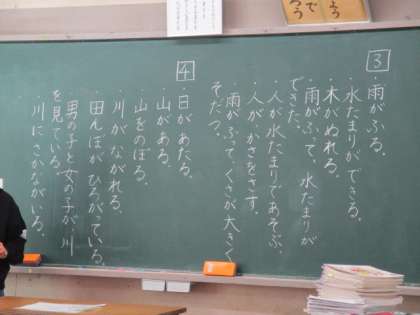 3
・雨がふる。
・水たまりができる。
・木がぬれる。
・雨がふって、水たまりが
できた。
・人が水たまりであそぶ。
・人が、かさをさす。
・雨がふって、くさが大きく
そだつ。
4
・日があたる。
・山がある。
・山をのぼる。
・川がながれる。
・田んぼがひろがっている。
・男の子と女の子が、川
を見ている。
・川にさかながいる。